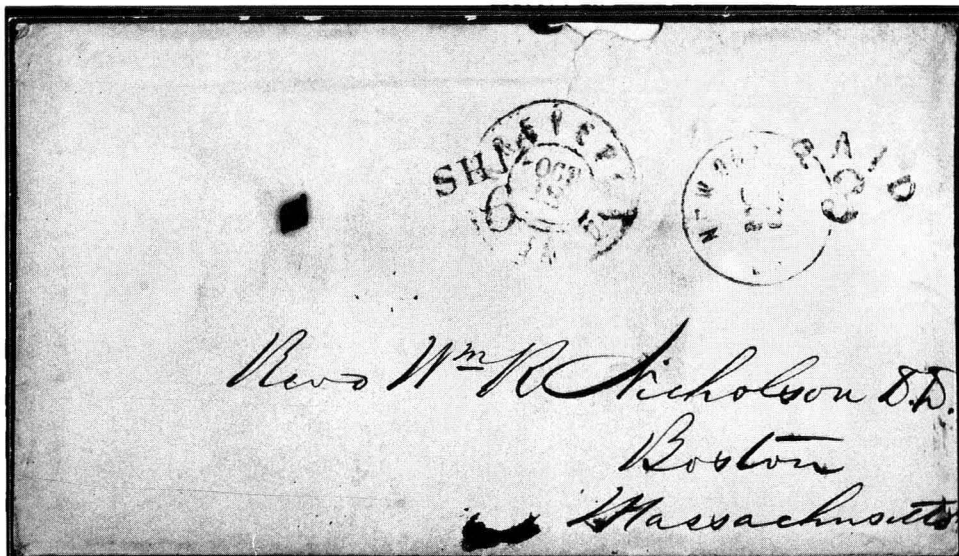 SHIP
6
OCT
PAID
Revd Wm R Nicholson D.D.
Boston
Massachusetts